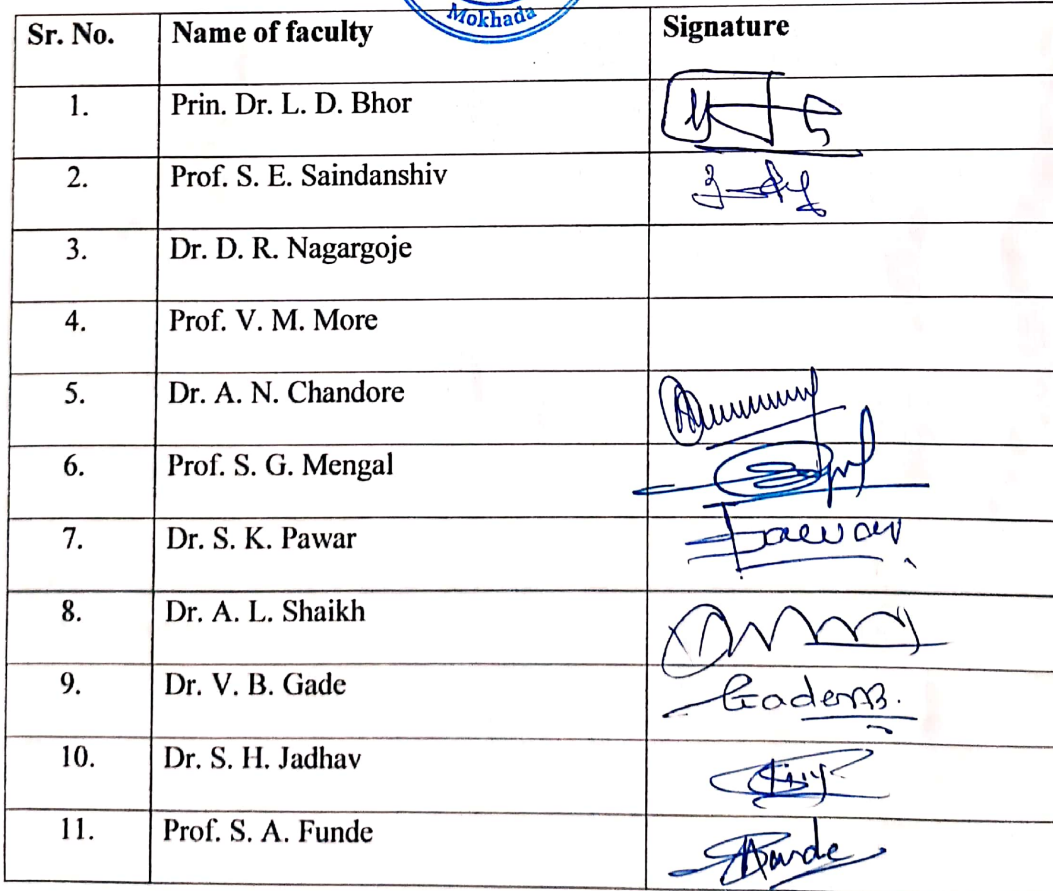 Mokhada
Sr. No. Name of faculty Signature
1. Prin. Dr. L. D. Bhor
2. Prof. S. E. Saindanshiv
3. Dr. D. R. Nagargoje
4. Prof. V. M. More
5. Dr. A. N. Chandore
6. Prof. S. G. Mengal
7. Dr. S. K. Pawar
8. Dr. A. L. Shaikh
9. Dr. V. B. Gade
10. Dr. S. H. Jadhav
11. Prof. S. A. Funde